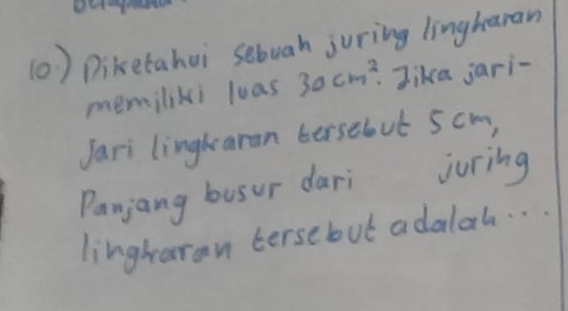 10.) Diketahui sebuah juring lingkaran
memiliki luas 30 cm². Jika jari-
Jari lingkaran tersebut 5 cm,
Panjang busur dari juring
lingkaran tersebut adalah...